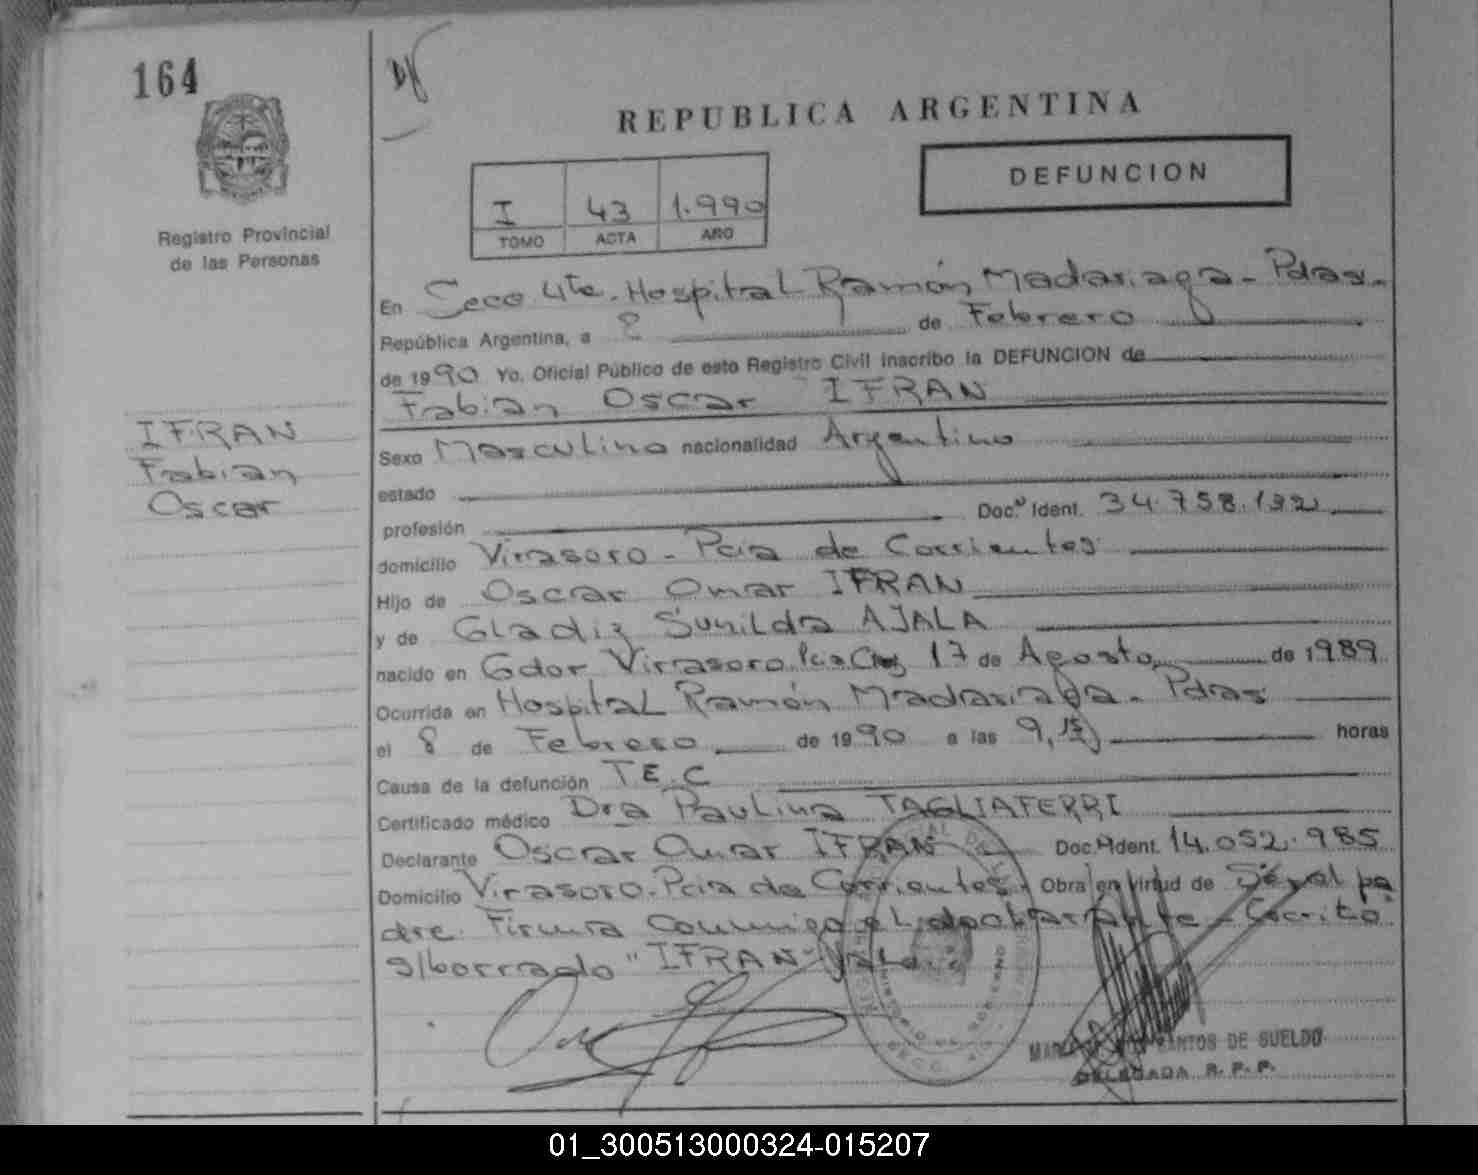 164
REPUBLICA ARGENTINA
DEFUNCION
I 43 1.990
TOMO ACTA AÑO
Registro Provincial
de las Personas
En Secc 4ta. Hospital Ramón Madariaga - Pdas.
República Argentina, a 8 de Febrero
de 1990 Yo, Oficial Público de este Registro Civil inscribo la DEFUNCION de
Fabian Oscar IFRAN
IFRAN
Fabian
Oscar
Sexo Masculino nacionalidad Argentino
estado
profesión Doc. Ident. 34.758.132
domicilio Virasoro - Pcia de Corrientes
Hijo de Oscar Omar IFRAN
y de Gladiz Sunilda AJALA
nacido en Gdor Virrasoro. Pcia Ctes 17 de Agosto de 1989
Ocurrida en Hospital Ramón Madariaga - Pdas
el 8 de Febrero de 1990 a las 9,15 horas
Causa de la defunción T.E.C
Certificado médico Dra Paulina TAGLIAFERRI
Declarante Oscar Omar IFRAN Doc. Ident. 14.052.985
Domicilio Virasoro. Pcia de Corrientes. Obra en virtud de Sér el pa
dre. Firma conmigo el declarante - Escrito
s/borrado "IFRAN" Vale
SANTOS DE SUELDO
DELEGADA R. P. P.
01_300513000324-015207